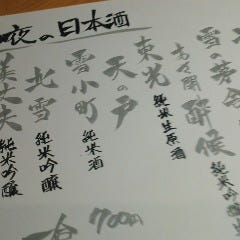 夜の日本酒
雪の茅舎
純米吟醸
酔候
あさ開
純米生原酒
東光
天の戸
純米酒
雪小町
純米吟醸
北雪
純米吟醸
美丈夫
一合 700円